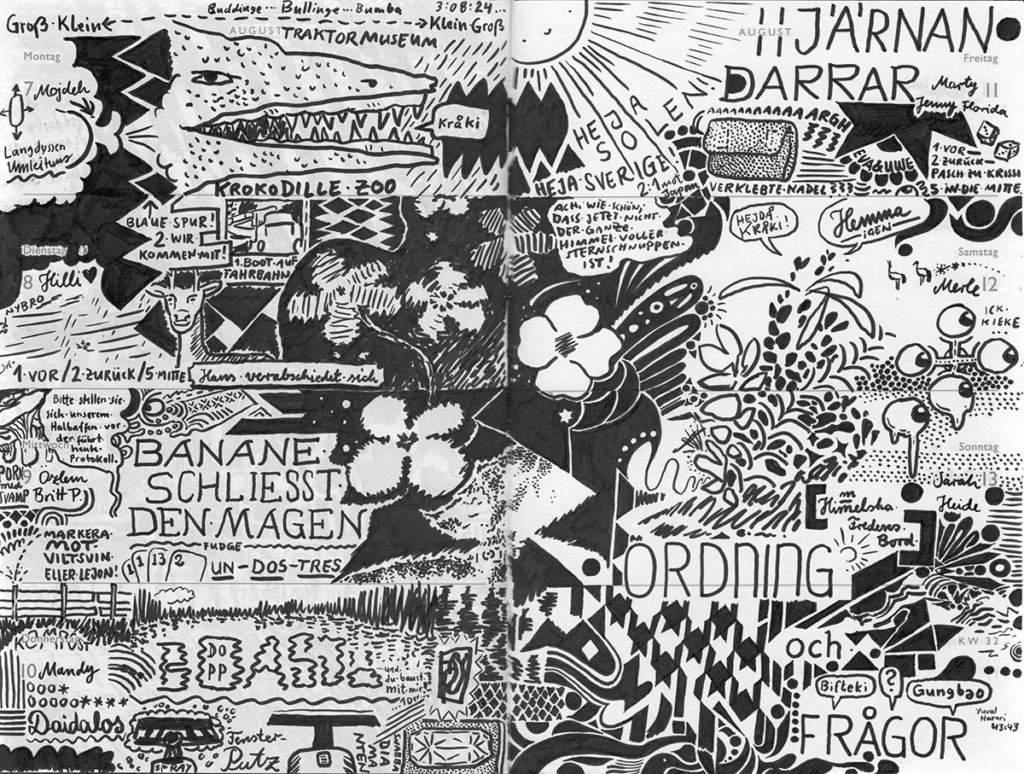 Buddinge... Bullinge... Bumba
3:08:24...
Groß·Klein
Klein Groß
AUGUST
TRAKTORMUSEUM
Montag
7
Mojdeh
Långdyssen
Umleitung
Kråki
KROKODILLE·ZOO
BLAUE SPUR!
2·WIR·
KOMMEN·MIT!
1.BOOT·AUF
FAHRBAHN
Dienstag
8
Hilli
NYBRO
1·VOR/2·ZURÜCK/5·MITTE
Hans·verabschiedet·sich
Bitte·stellen·sie
sich·unserem
Halbaffen·vor
der·führt
heute·
Protokoll·
Mittwoch
9
Özlem
Britt P.
PORK
med
SVAMP
BANANE·
SCHLIESST·
DEN·MAGEN
FUDGE
MARKERA·
MOT·
VILTSVIN·
ELLER·LEJON!
1
1
13
2
UN-DOS-TRES
Donnerstag
10
Mandy
DO
PP
und
du·baust
mit·mir
Daidalos
SPRAY
Fenster-
Putz
DIA
MAN
TEN
AUGUST
HJÄRNAN
DARRAR
Freitag
11
Marty
Jenny Florida
HEJA
SOLEN
HEJA·SVERIGE
2:1·mot
Japan
AAAAAAAAARGH
EVA&UWE
1·VOR
2·ZURÜCK
PASCH·ZU·KRISSI
5·IN·DIE·MITTE
VERKLEBTE·NADEL
ACH·WIE·SCHÖN,
DASS·JETZT·NICHT·
DER·GANZE·
HIMMEL·VOLLER·
STERNSCHNUPPEN·
IST!
HEJDÅ
KRÅKI!
Hemma
IGEN
Samstag
12
Merle
ICK·
KIEKE
Sonntag
13
Järali
Heide
m
Himelska
Fredens
Bord
ORDNING
och
KW 32
Bifteki
?
Gungbao
Yuval
Harari
43:43
FRÅGOR